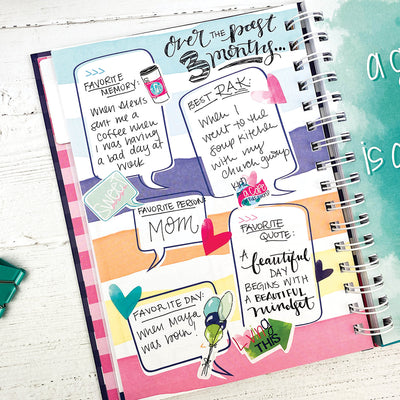 Over THE past
3 months...
FAVORITE
MEMORY:
When Alexis
sent me a
coffee when
I was having
a bad day at
work
BEST RAK:
When I
went to the
Soup Kitchen
with my
church group
SWEET
FAVORITE PERSON:
MOM
FAVORITE
QUOTE:
A
beautiful
DAY
BEGINS WITH
A BEAUTIFUL
mindset
FAVORITE DAY:
When Maya
was born!
Living
THIS
a g
is a